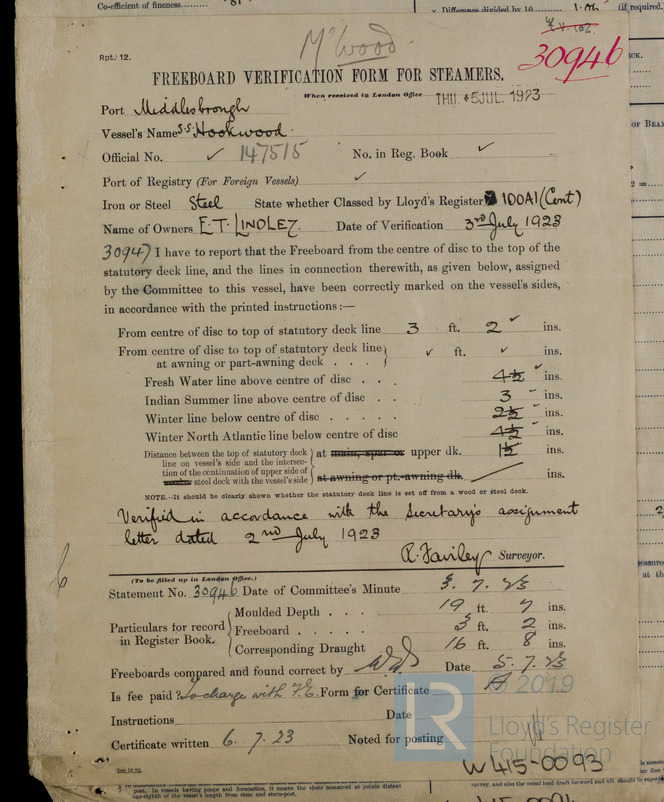 Co-efficient of fineness
Difference divided by 10
(if required.)
M'Wood
30946
Rpt. 12.
FREEBOARD VERIFICATION FORM FOR STEAMERS.
When received in London Office THU. 5 JUL. 1923
Port Middlesbrough
Vessel's Name S.S. Hookwood
Official No. ✓ 147515 No. in Reg. Book ✓
Port of Registry (For Foreign Vessels) ✓
Iron or Steel Steel State whether Classed by Lloyd's Register 100A1 (Cont)
Name of Owners E.T. LINDLEY. Date of Verification 3rd July 1923
30947 I have to report that the Freeboard from the centre of disc to the top of the
statutory deck line, and the lines in connection therewith, as given below, assigned
by the Committee to this vessel, have been correctly marked on the vessel's sides,
in accordance with the printed instructions:—
From centre of disc to top of statutory deck line 3 ft. 2 ✓ ins.
From centre of disc to top of statutory deck line
at awning or part-awning deck . . . ✓ ft. ✓ ins.
Fresh Water line above centre of disc . . . 4½ ✓ ins.
Indian Summer line above centre of disc . . 3 ins.
Winter line below centre of disc . . . . . 2½ ins.
Winter North Atlantic line below centre of disc 4½ ins.
Distance between the top of statutory deck
line on vessel's side and the intersec-
tion of the continuation of upper side of
wooden steel deck with the vessel's side
at main, spar or upper dk. 1½ ins.
at awning or pt.-awning dk. ins.
NOTE.—It should be clearly shown whether the statutory deck line is set off from a wood or steel deck.
Verified in accordance with the Secretary's assignment
letter dated 2nd July 1923
Surveyor.
(To be filled up in London Office.)
Statement No. 30946 Date of Committee's Minute 3. 7. 23
Particulars for record
in Register Book.
Moulded Depth . . . 19 ft. 7 ins.
Freeboard . . . . . 3 ft. 2 ins.
Corresponding Draught 16 ft. 8 ins.
Freeboards compared and found correct by Date 5. 7. 23
Is fee paid? No charge with F.E. Form for Certificate
Instructions Date
Certificate written 6. 7. 23 Noted for posting
© 2019
LR
Lloyd's Register
Foundation
W415-0093
post. In vessels having poops and forecastles, it means the sheer measured at points distant
one-eighth of the vessel's length from stem and stern-post.